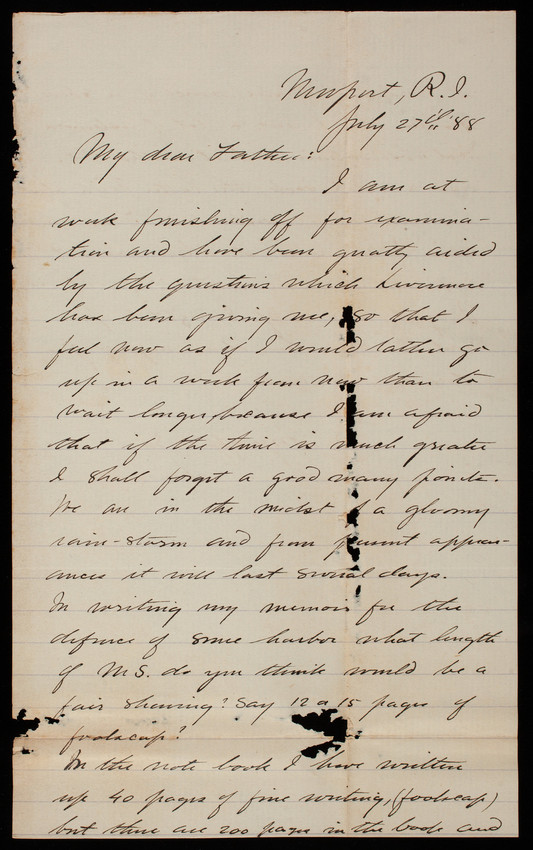 Newport, R.I.
July 27th '88
My dear Father:
I am at
work finishing off for examina-
tion and have been greatly aided
by the questions which Livermore
has been giving me, so that I
feel now as if I would rather go
up in a week from now than to
wait longer, because I am afraid
that if the time is much greater
I shall forget a good many points.
We are in the midst of a gloomy
rain-storm and from present appear-
ances it will last several days.
In writing my memoir for the
defence of some harbor what length
of MS. do you think would be a
fair showing? Say 12 or 15 pages of
foolscap?
In the note book I have written
up 40 pages of fine writing, (foolscap)
but there are 200 pages in the book and